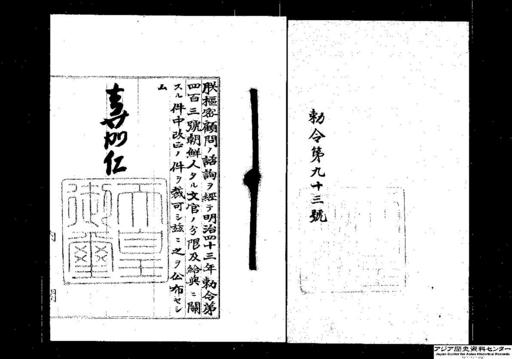 勅令第九十三號
朕樞密顧問ノ諮詢ヲ經テ明治四十三年勅令第
四百三號朝鮮人タル文官ノ分限及給與ニ關
スル件中改正ノ件ヲ裁可シ玆ニ之ヲ公布セシ
ム
嘉仁
天皇
御璽
内
閣
アジア歴史資料センター
Japan Center for Asian Historical Records